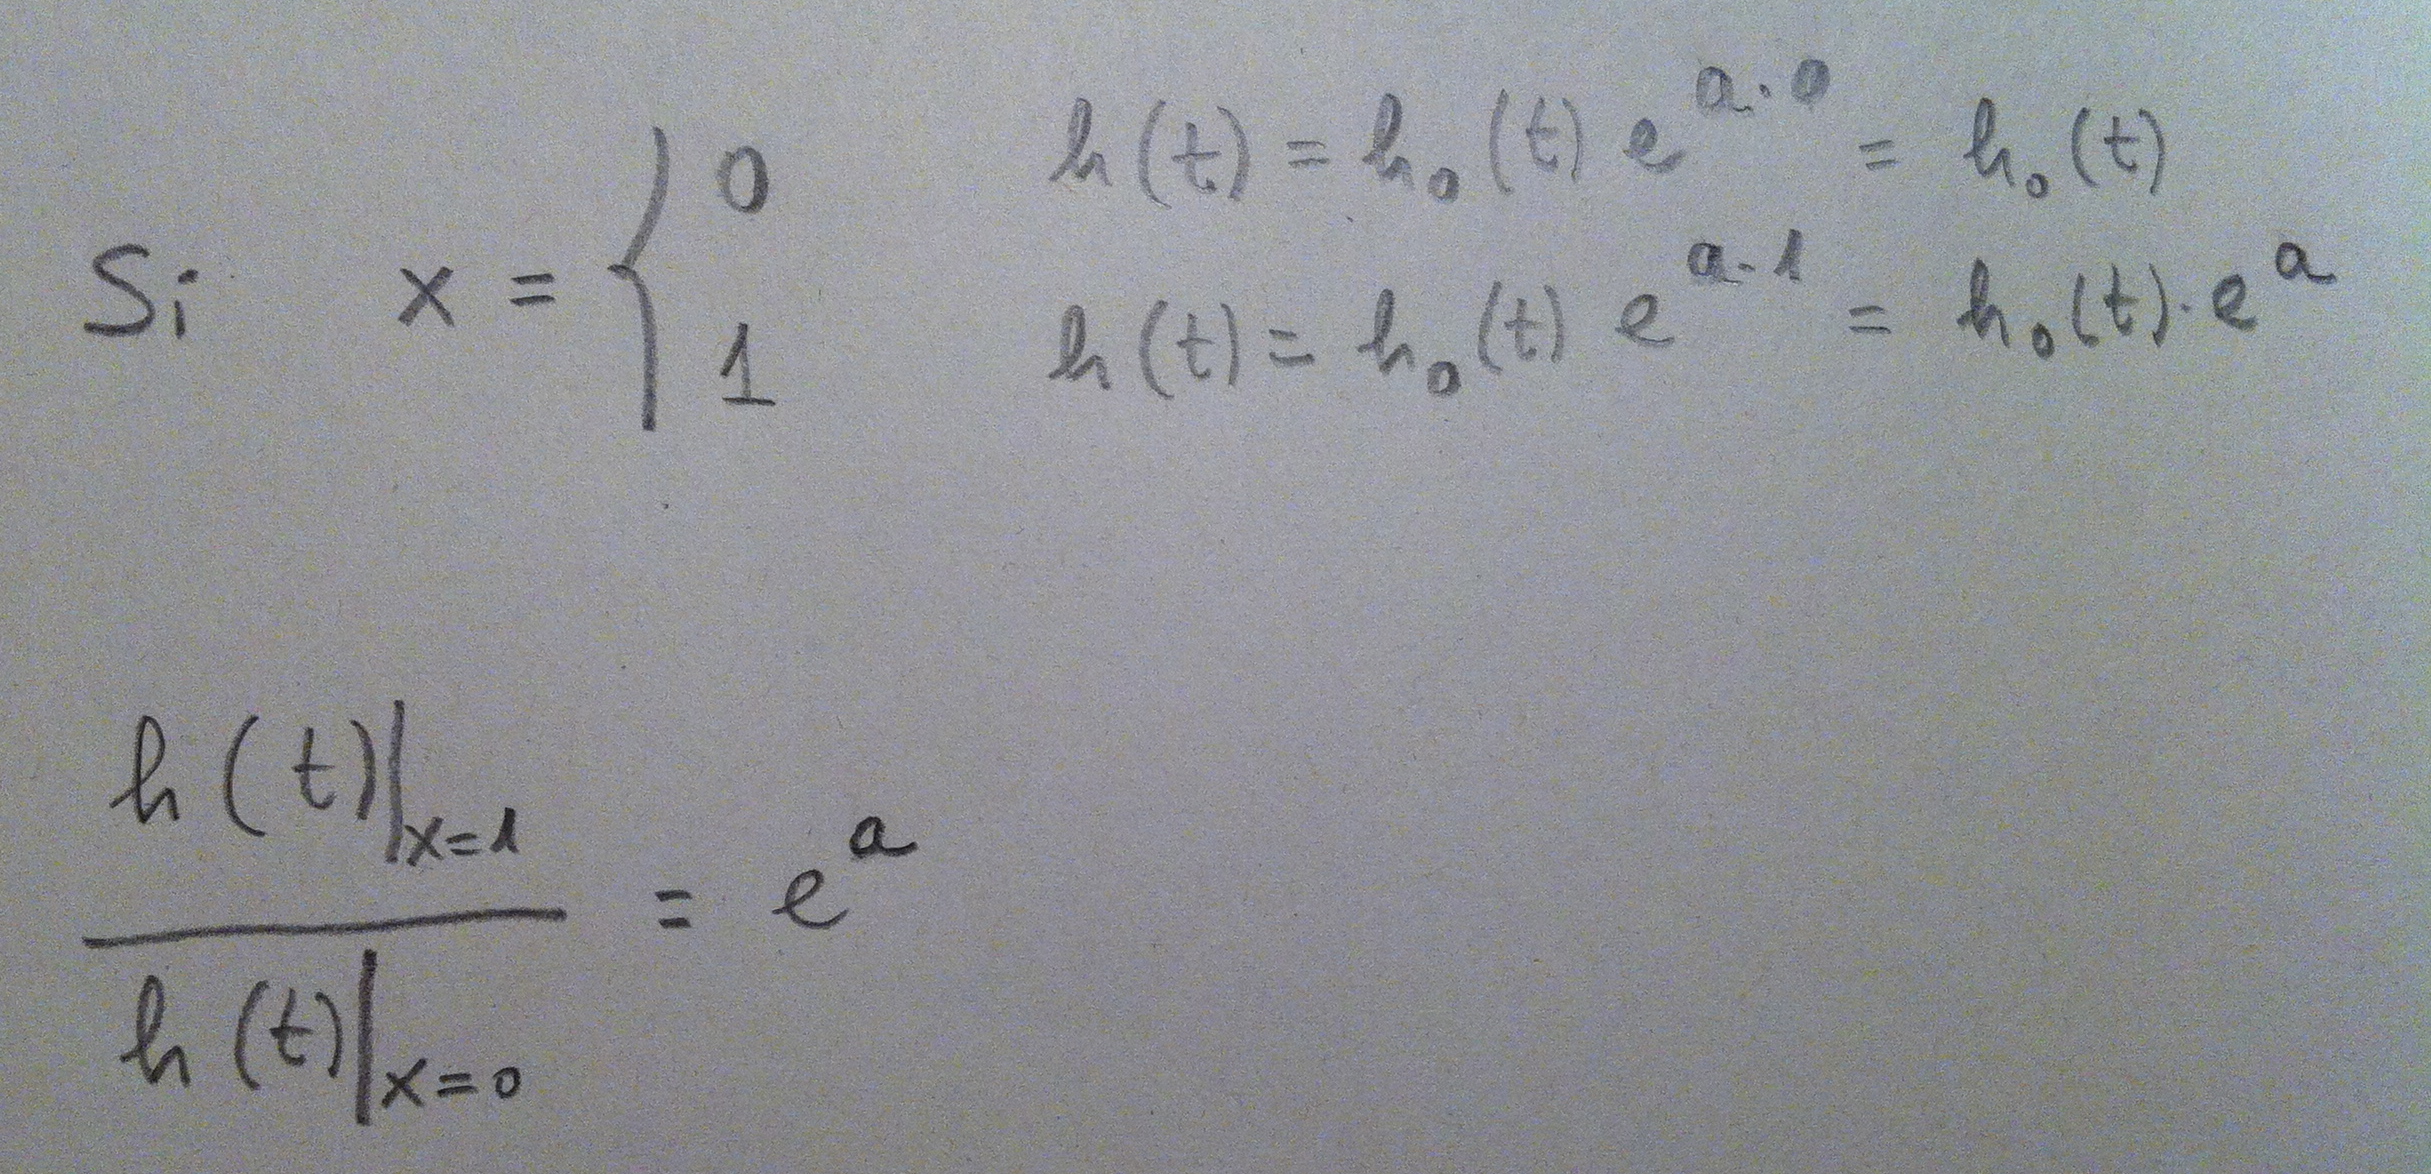 Si x = { 0 h(t) = h₀(t) e^{a·0} = h₀(t)
1 h(t) = h₀(t) e^{a·1} = h₀(t)·e^a
h(t)|x=1
= e^a
h(t)|x=0